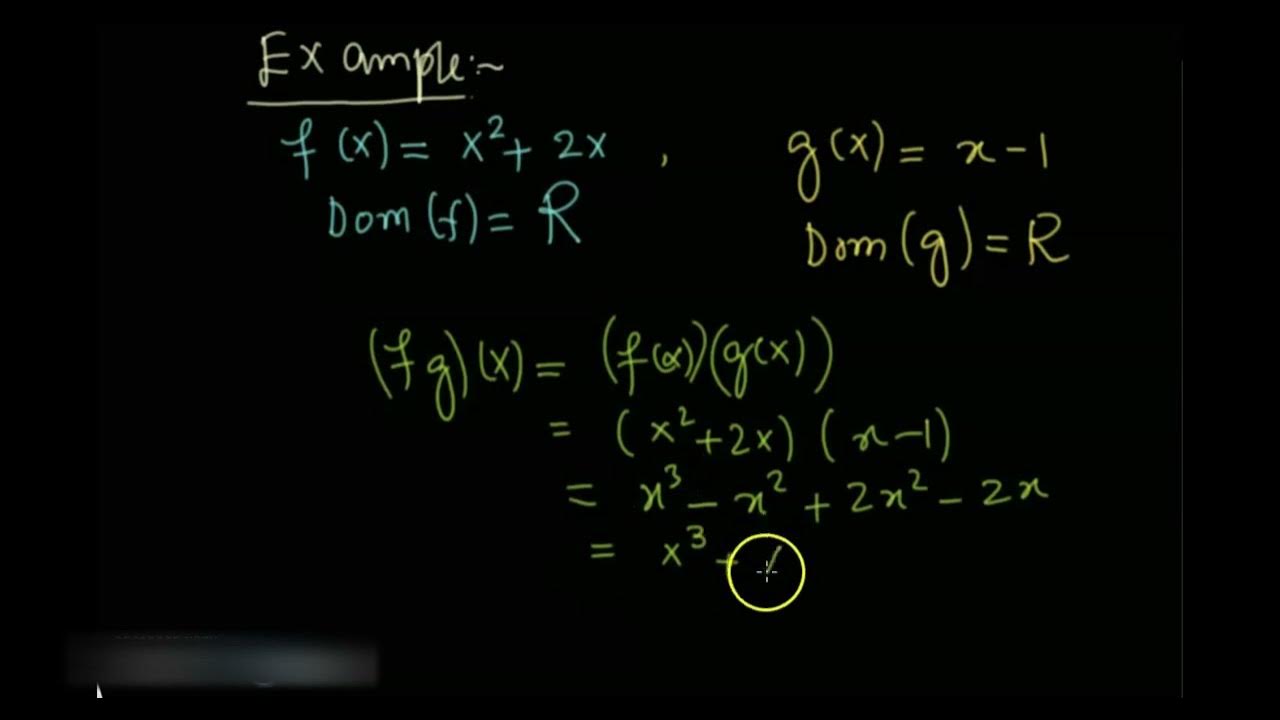 Example:~
f(x) = x²+ 2x , g(x) = x-1
Dom(f) = R Dom(g) = R
(fg)(x) = (f(x))(g(x))
= (x²+2x) (x-1)
= x³ - x² + 2x² - 2x
= x³ +